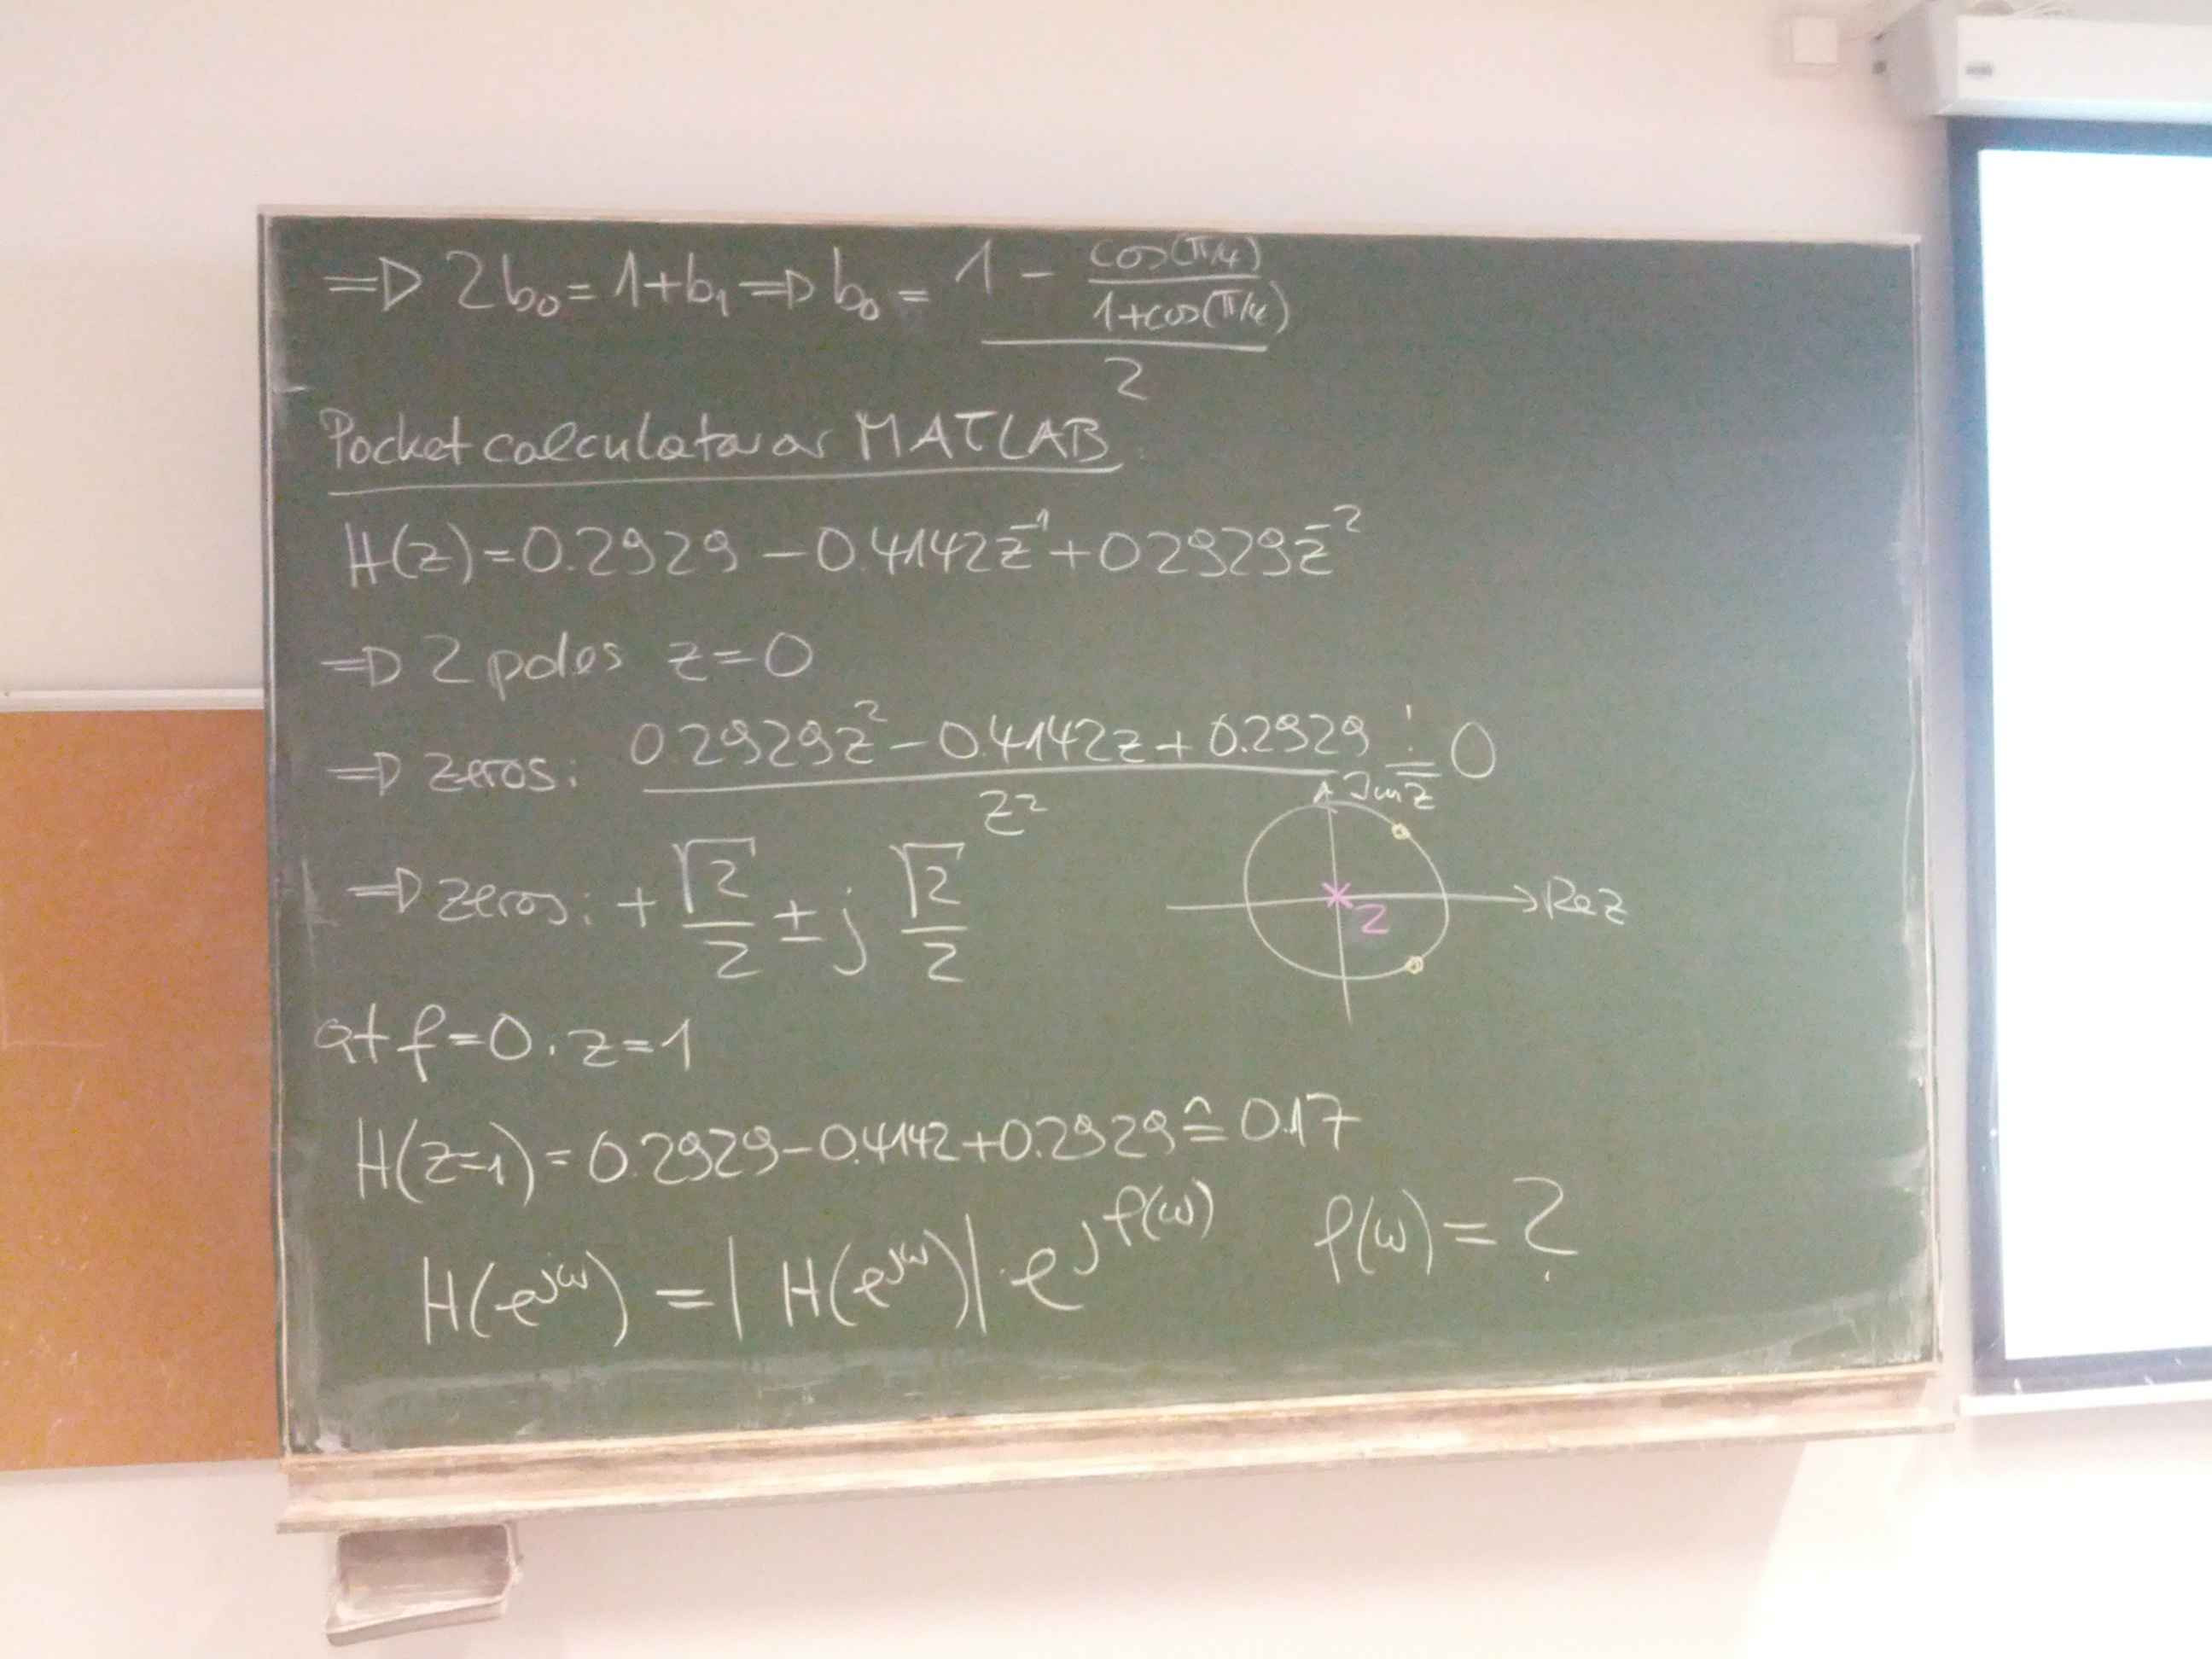 ⇒ 2b₀ = 1+b₁ ⇒ b₀ = (1 - cos(π/4)/(1+cos(π/4)))/2
Pocket calculator or MATLAB
H(z) = 0.2929 - 0.4142z⁻¹ + 0.2929z⁻²
⇒ 2 poles z=0
⇒ zeros: (0.2929z² - 0.4142z + 0.2929)/z² != 0
Im z
⇒ zeros: + √2/2 ± j √2/2
Re z
2
at f=0. z=1
H(z=1) = 0.2929-0.4142+0.2929 ≙ 0.17
H(e^jω) = |H(e^jω)| · e^jφ(ω) φ(ω) = ?